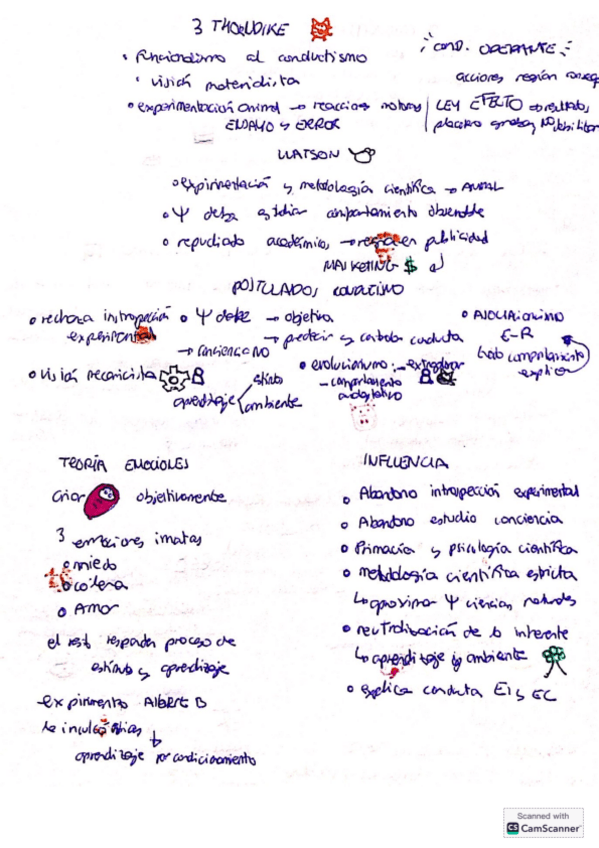 3 THORNDIKE
• Funcionalismo al conductismo
COND. OPERANTE
• visión materialista
acciones región
• experimentación animal → reacciones motoras
ENSAYO y ERROR
LEY EFECTO
WATSON
• experimentación y metodología científica → ANIMAL
• Ψ debe estudiar comportamiento observable
• repudiado académicos → en publicidad
MARKETING $
POSTULADOS CONDUCTISMO
• rechaza introspección experimental
• Ψ debe → objetiva
→ predecir y controlar conducta
→ conciencia NO
• ASOCIACIONISMO
E-R
todo comportamiento explica
• visión mecanicista
aprendizaje
ambiente
• evolucionismo: - extrapolar
- comportamiento adaptativo
TEORÍA EMOCIONES
criar objetivamente
3 emociones innatas
• miedo
• cólera
• AMOR
el resto responden proceso de
estímulo y aprendizaje
experimento Albert B
le inculcó fobias
aprendizaje por condicionamiento
INFLUENCIA
• Abandono introspección experimental
• Abandono estudio conciencia
• Primacía y psicología científica
• metodología científica estricta
↳ aproximar Ψ ciencias naturales
• neutralización de lo inherente
↳ aprendizaje y ambiente
• explica conducta EI y EC
Scanned with
CS CamScanner